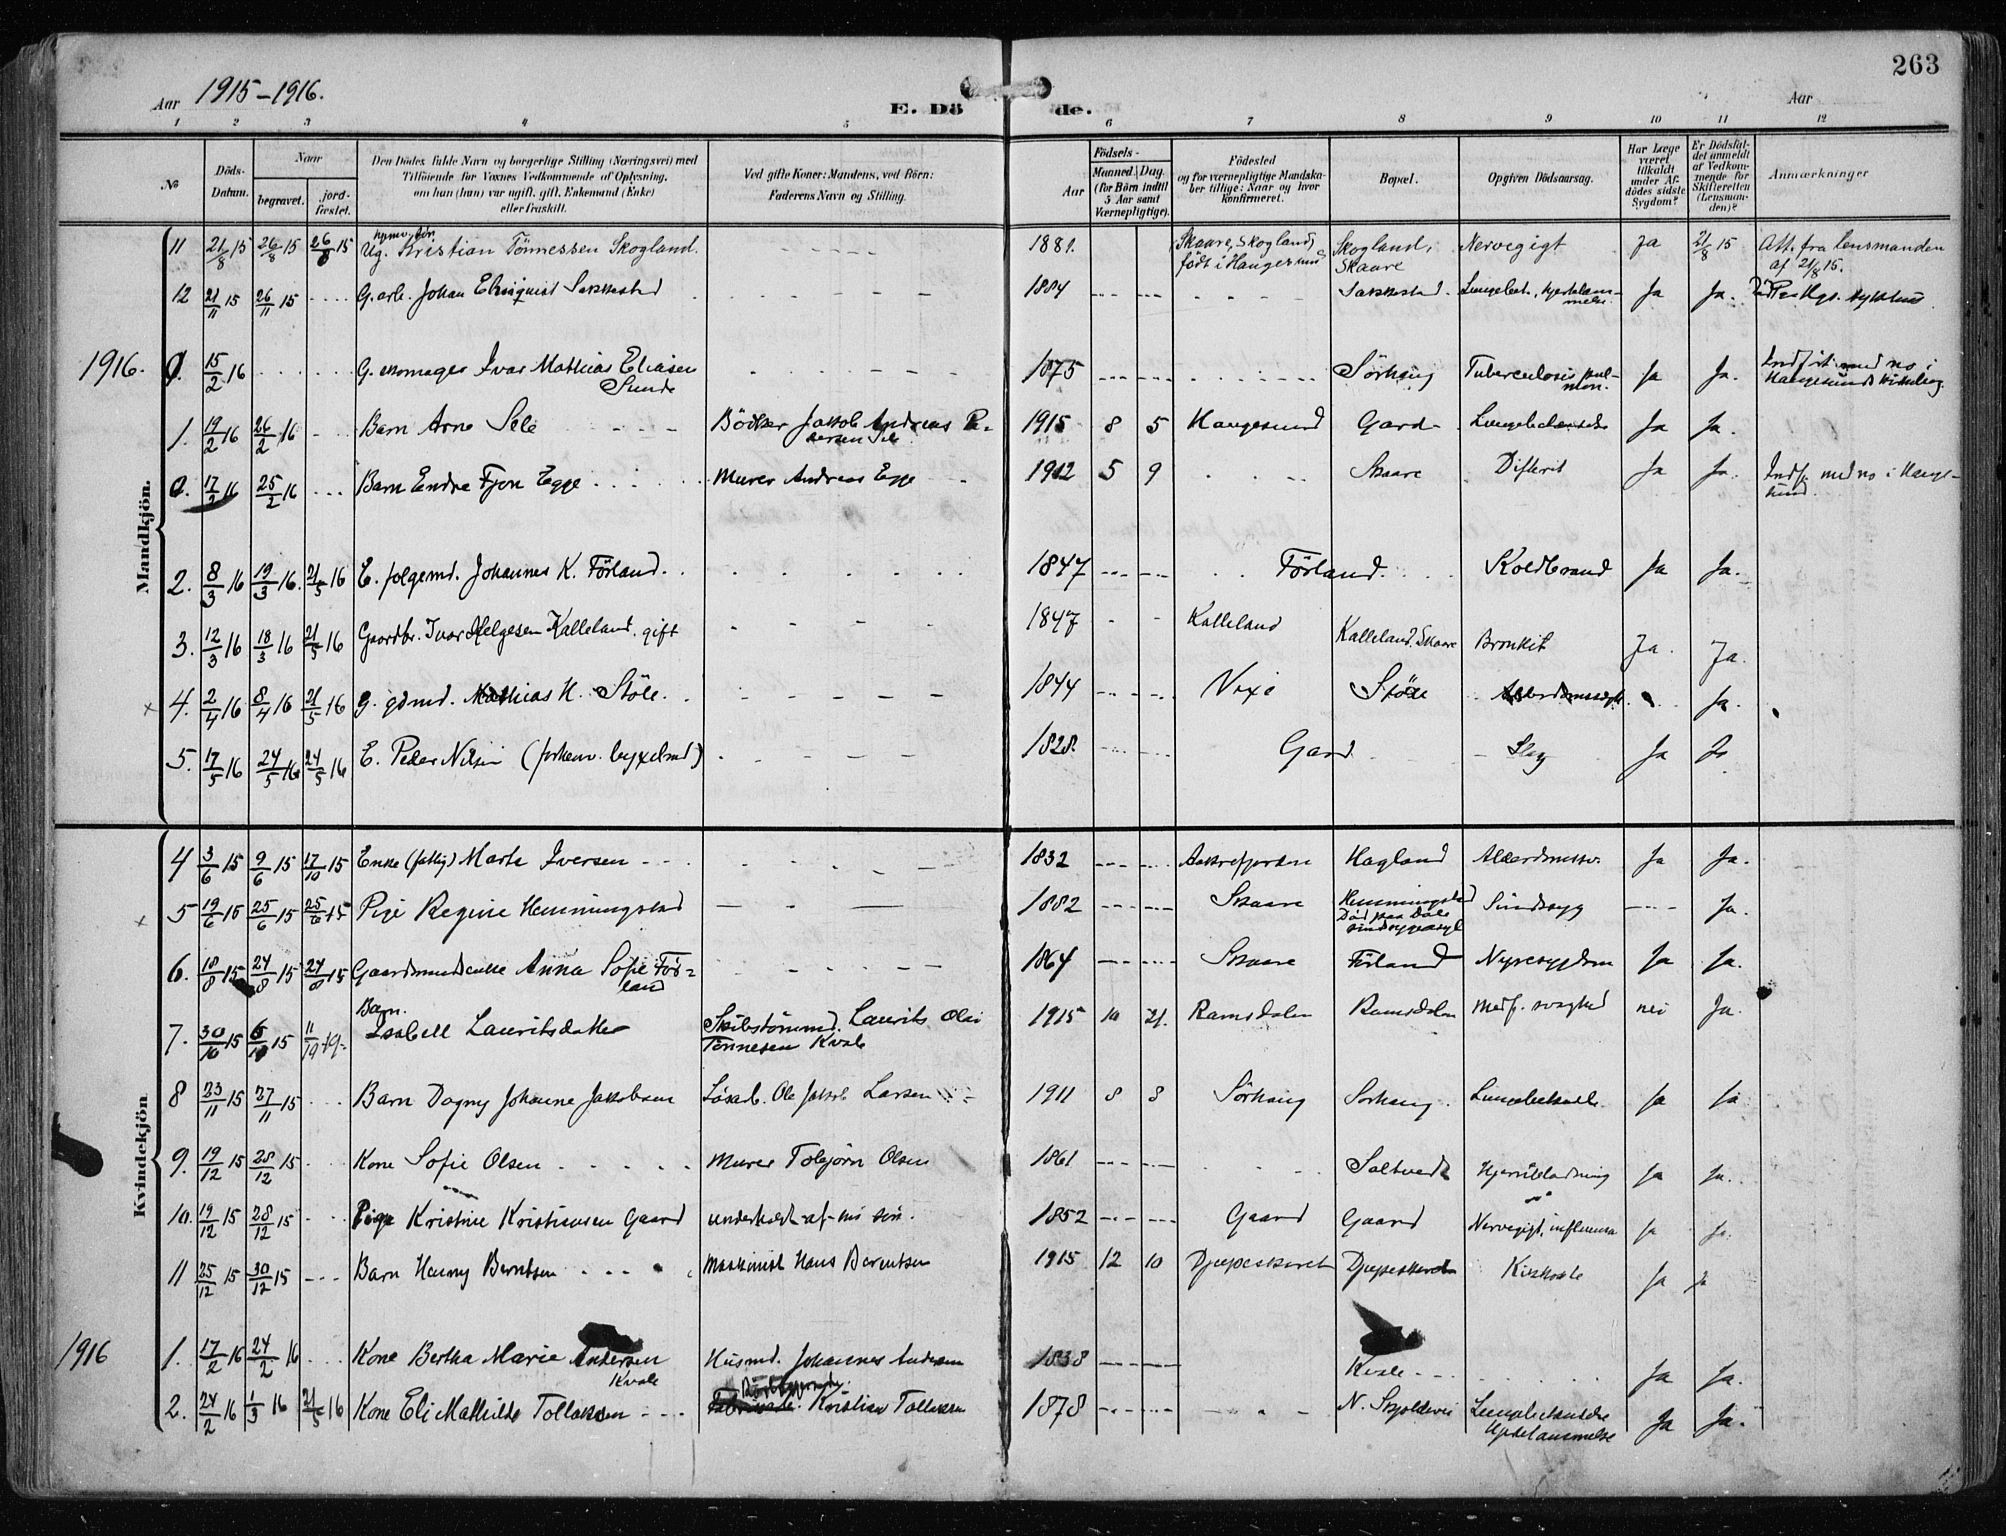 263
Aar 1915-1916.
E. Dö de.
Aar
1 2 3 4 5 6 7 8 9 10 11 12
No
Döds-Datum.
Naar
begravet.
jord-fæstet.
Den Dödes fulde Navn og borgerlige Stilling (Næringsvei) med
Tilföiende for Voxnes Vedkommende af Oplysning,
om han (hun) var ugift, gift, Enkemand (Enke)
eller fraskilt.
Ved gifte Koner: Mandens, ved Börn:
Faderens Navn og Stilling.
Födsels-
Aar
Maaned. Dag.
(for Börn indtil
5 Aar samt
Værnepligtige).
Födested
og for værnepligtige Mandska-
ber tillige: Naar og hvor
konfirmeret.
Bopæl.
Opgiven Dödsaarsag.
Har Læge
været
tilkaldt
under Af-
dödes sidste
Sygdom?
Er Dödsfal-
det anmeldt
af Vedkom-
mende for
Skifteretten
(Lensman-
den)?
Anmærkninger
Mandkjön.
11 21/8 15 26/8 15 26/8 15 Ug. Kristian Tönnessen Skogland. 1881. Skaare, Skogland, födt i Haugesund Skogland, Skaare Nervegigt Ja 21/8 15 Att. fra Lensmanden af 21/8 15.
12 21/11 15 26/11 15 G. arb. Johan Sakkestad 1884 Sakkestad Ja Ja.
1916. 0. 15/2 16 G. skomager Ivar Mathias Eliasen Sunde 1875 Sörhaug Tuberculosis pulmon. Ja Ja. Indfört med no i Haugesunds
1. 19/2 16 26/2 16 Barn Arne Sele Bödker Jakob Andreas Petersen Sele 1915 8 5 Haugesund Gard Lungebetændelse Ja Ja.
0. 17/2 16 25/2 16 Barn Endre Fjon Egge Murer Andreas Egge 1912 5 9 Skaare Difterit Ja Ja. Indf. med no i Haugesund.
2. 8/3 16 19/3 16. 21/5 16 E. folgemd. Johannes K. Förland. 1847 Förland. Koldbrand Ja Ja.
3. 12/3 16 18/3 16 21/5 16 Gaardbr. Ivar Helgesen Kalleland. gift 1847 Kalleland Kalleland. Skaare Bronkit Ja. Ja.
4. 2/4 16 8/4 16 21/5 16 G. gdmd. Mathias H. Stöle. 1844 Stöle Ja.
5. 17/5 16 24/5 16 24/5 16 E. Peder Nilsen (forhenv. bygselmd) 1828. Gard Slag Ja Ja
Kvindekjön
4 3/6 15 9/6 15 17/10 15 Enke (fattig) Marta Iversen 1832 Aakrefjorden Hagland Alderdomssv. Ja Ja.
5 19/6 15 25/6 15 25/6 15 Pige Regine Hemmingstad 1882 Skaare Hemmingstad Död paa Dale sindsygeasyl Sindssyg Ja.
6. 18/8 15 24/8 15 24/8 15 Gaardmandsenke Anna Sofie Förland 1864 Skaare Förland Nyresygdom Ja Ja.
7. 30/10 15 Barn. Isabell Lauritsdatter Skibstömmd. Laurits Olai Tönnesen Kvale 1915 10 21. Ramsdalen Ramsdalen Medf. svaghed nei Ja.
8 23/11 15 27/11 15 Barn Dagny Johanne Jakobsen Lösarb. Ole Jakob Larsen 1911 8 8 Sörhaug Sörhaug. Ja Ja
9. 19/12 15 28/12 15 Kone Sofie Olsen Murer Tobjörn Olsen 1861 Saltveit Ja Ja.
10. 19/12 15 28/12 15 Pige Kristine Kristiansen Gaard underholdt af sin sön. 1852 Gaard Gaard Nervegigt, influensa Ja Ja.
11 25/12 15 30/12 15 Barn Henny Berntsen Maskinist Hans Berntsen 1915 12 10 Djupeskaret Djupeskaret Kikhoste Ja Ja
1916 1. 17/2 16 24/2 16 Kone Bertha Marie Andersen Kvale Husmd. Johannes Andersen 1838 Kvale Ja Ja.
2. 24/2 16 1/3 16 21/5 16 Kone Eli Mathilde Tollaksen Kristian Tollaksen 1878 N. Skjoldevei Lungebetændelse Hjertelammelse Ja Ja.